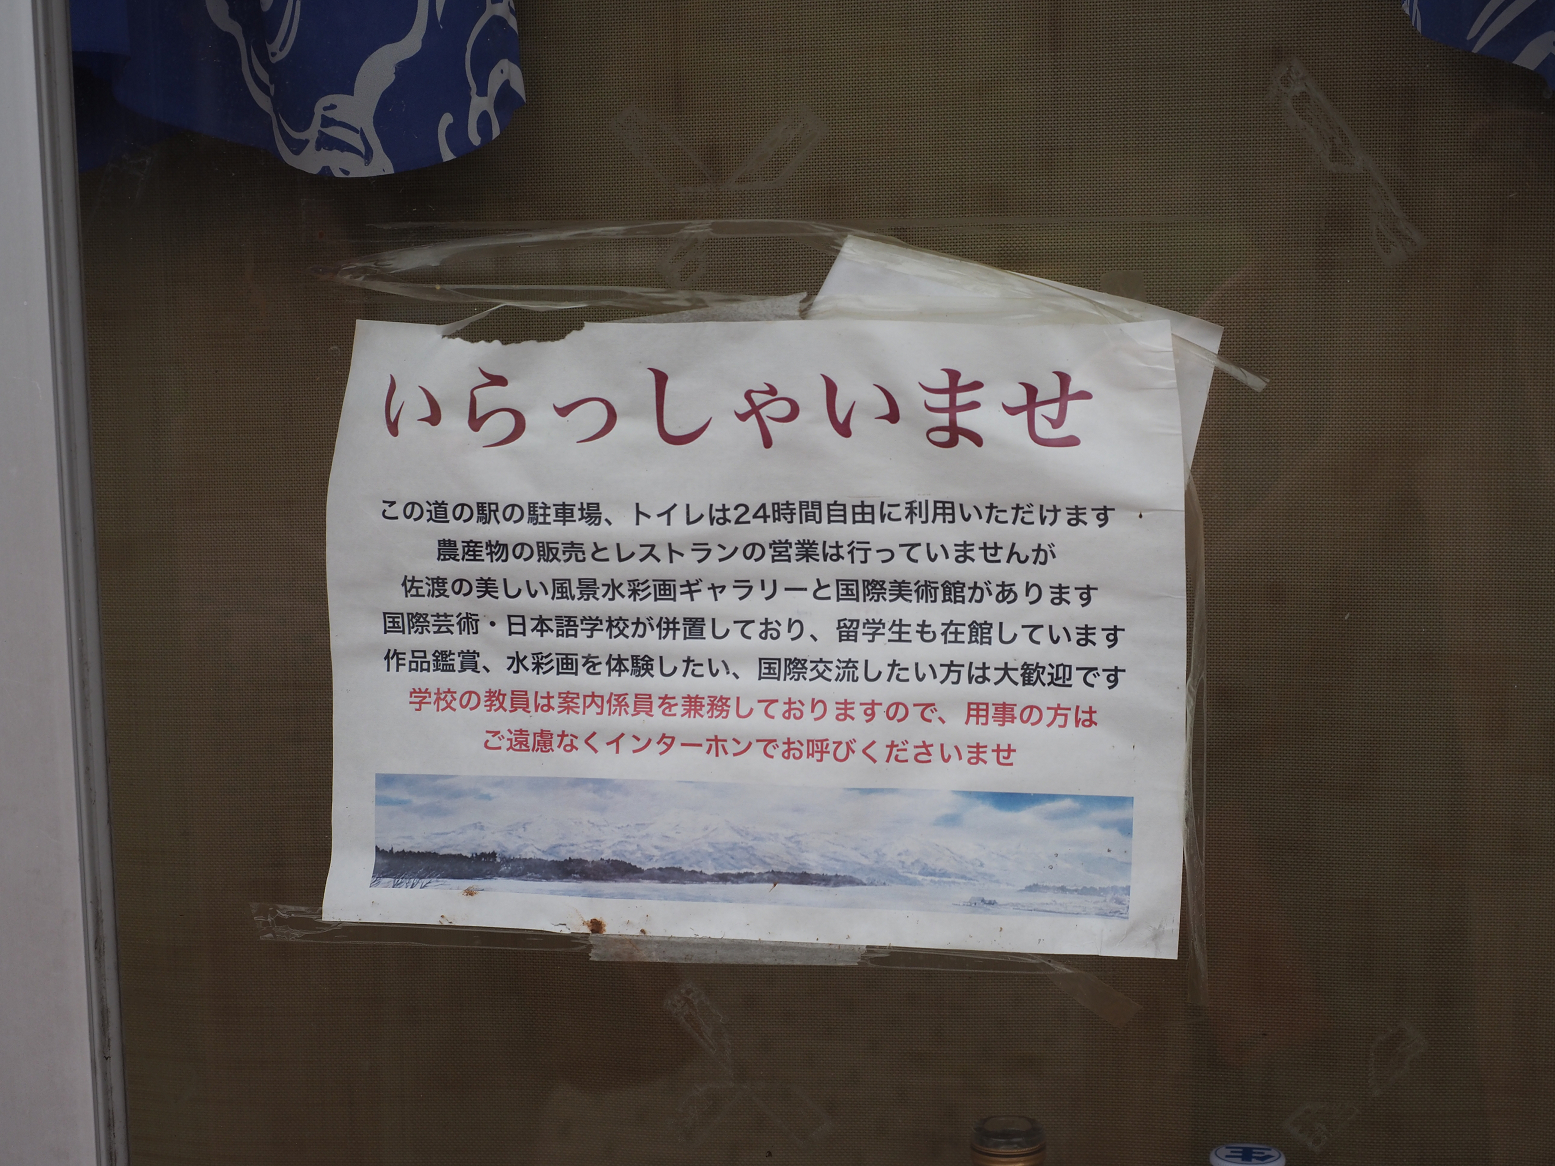 いらっしゃいませ
この道の駅の駐車場、トイレは24時間自由に利用いただけます
農産物の販売とレストランの営業は行っていませんが
佐渡の美しい風景水彩画ギャラリーと国際美術館があります
国際芸術・日本語学校が併置しており、留学生も在館しています
作品鑑賞、水彩画を体験したい、国際交流したい方は大歓迎です
学校の教員は案内係員を兼務しておりますので、用事の方は
ご遠慮なくインターホンでお呼びくださいませ